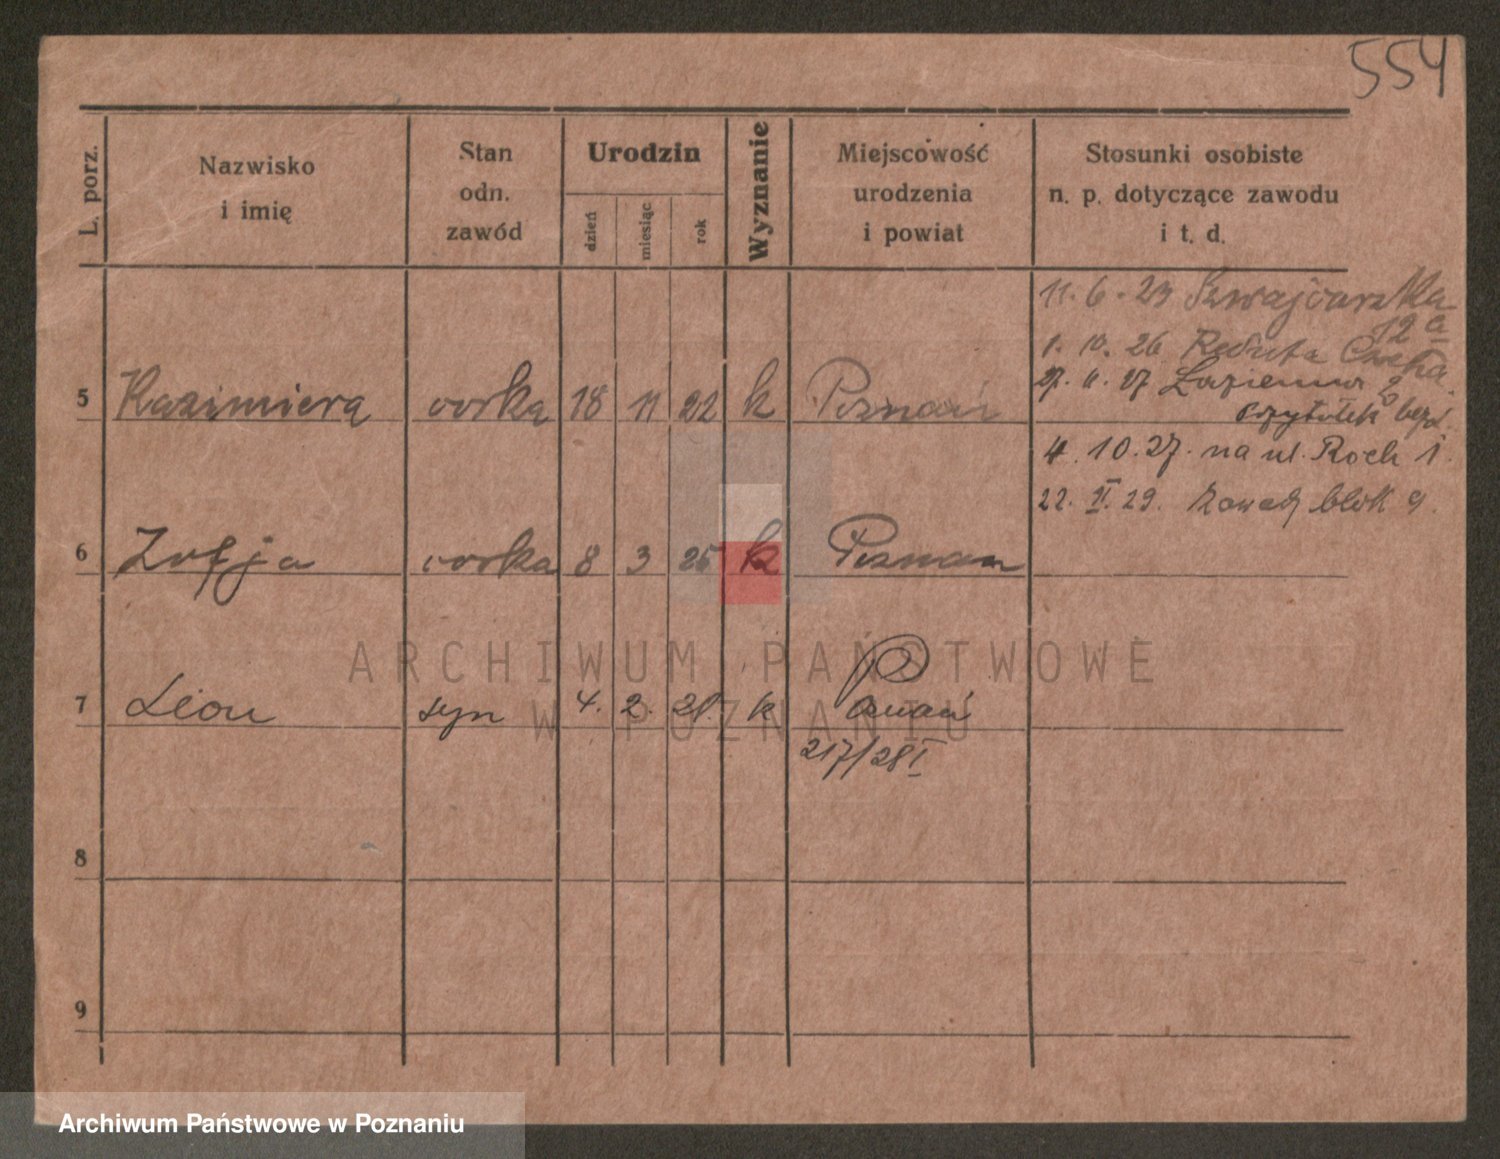 554
L. porz.
Nazwisko
i imię
Stan
odn.
zawód
Urodzin
dzień
miesiąc
rok
Wyznanie
Miejscowość
urodzenia
i powiat
Stosunki osobiste
n. p. dotyczące zawodu
i t. d.
11. 6. 23 Szwajcarzka
12 a
1. 10. 26 Reduta Czeka
27. 6. 27 Łazienna 2
Przytułek bezd.
5 Kazimiera corka 18 11 22 k Poznań
4. 10. 27. na ul. Roch 1.
22. VI. 29. Zawady blok 9.
6 Zofja corka 8 3 25 k Poznań
ARCHIWUM PAŃSTWOWE
W POZNANIU
7 Leon syn 4. 2. 28. k Poznań
217/28 I
8
9
Archiwum Państwowe w Poznaniu